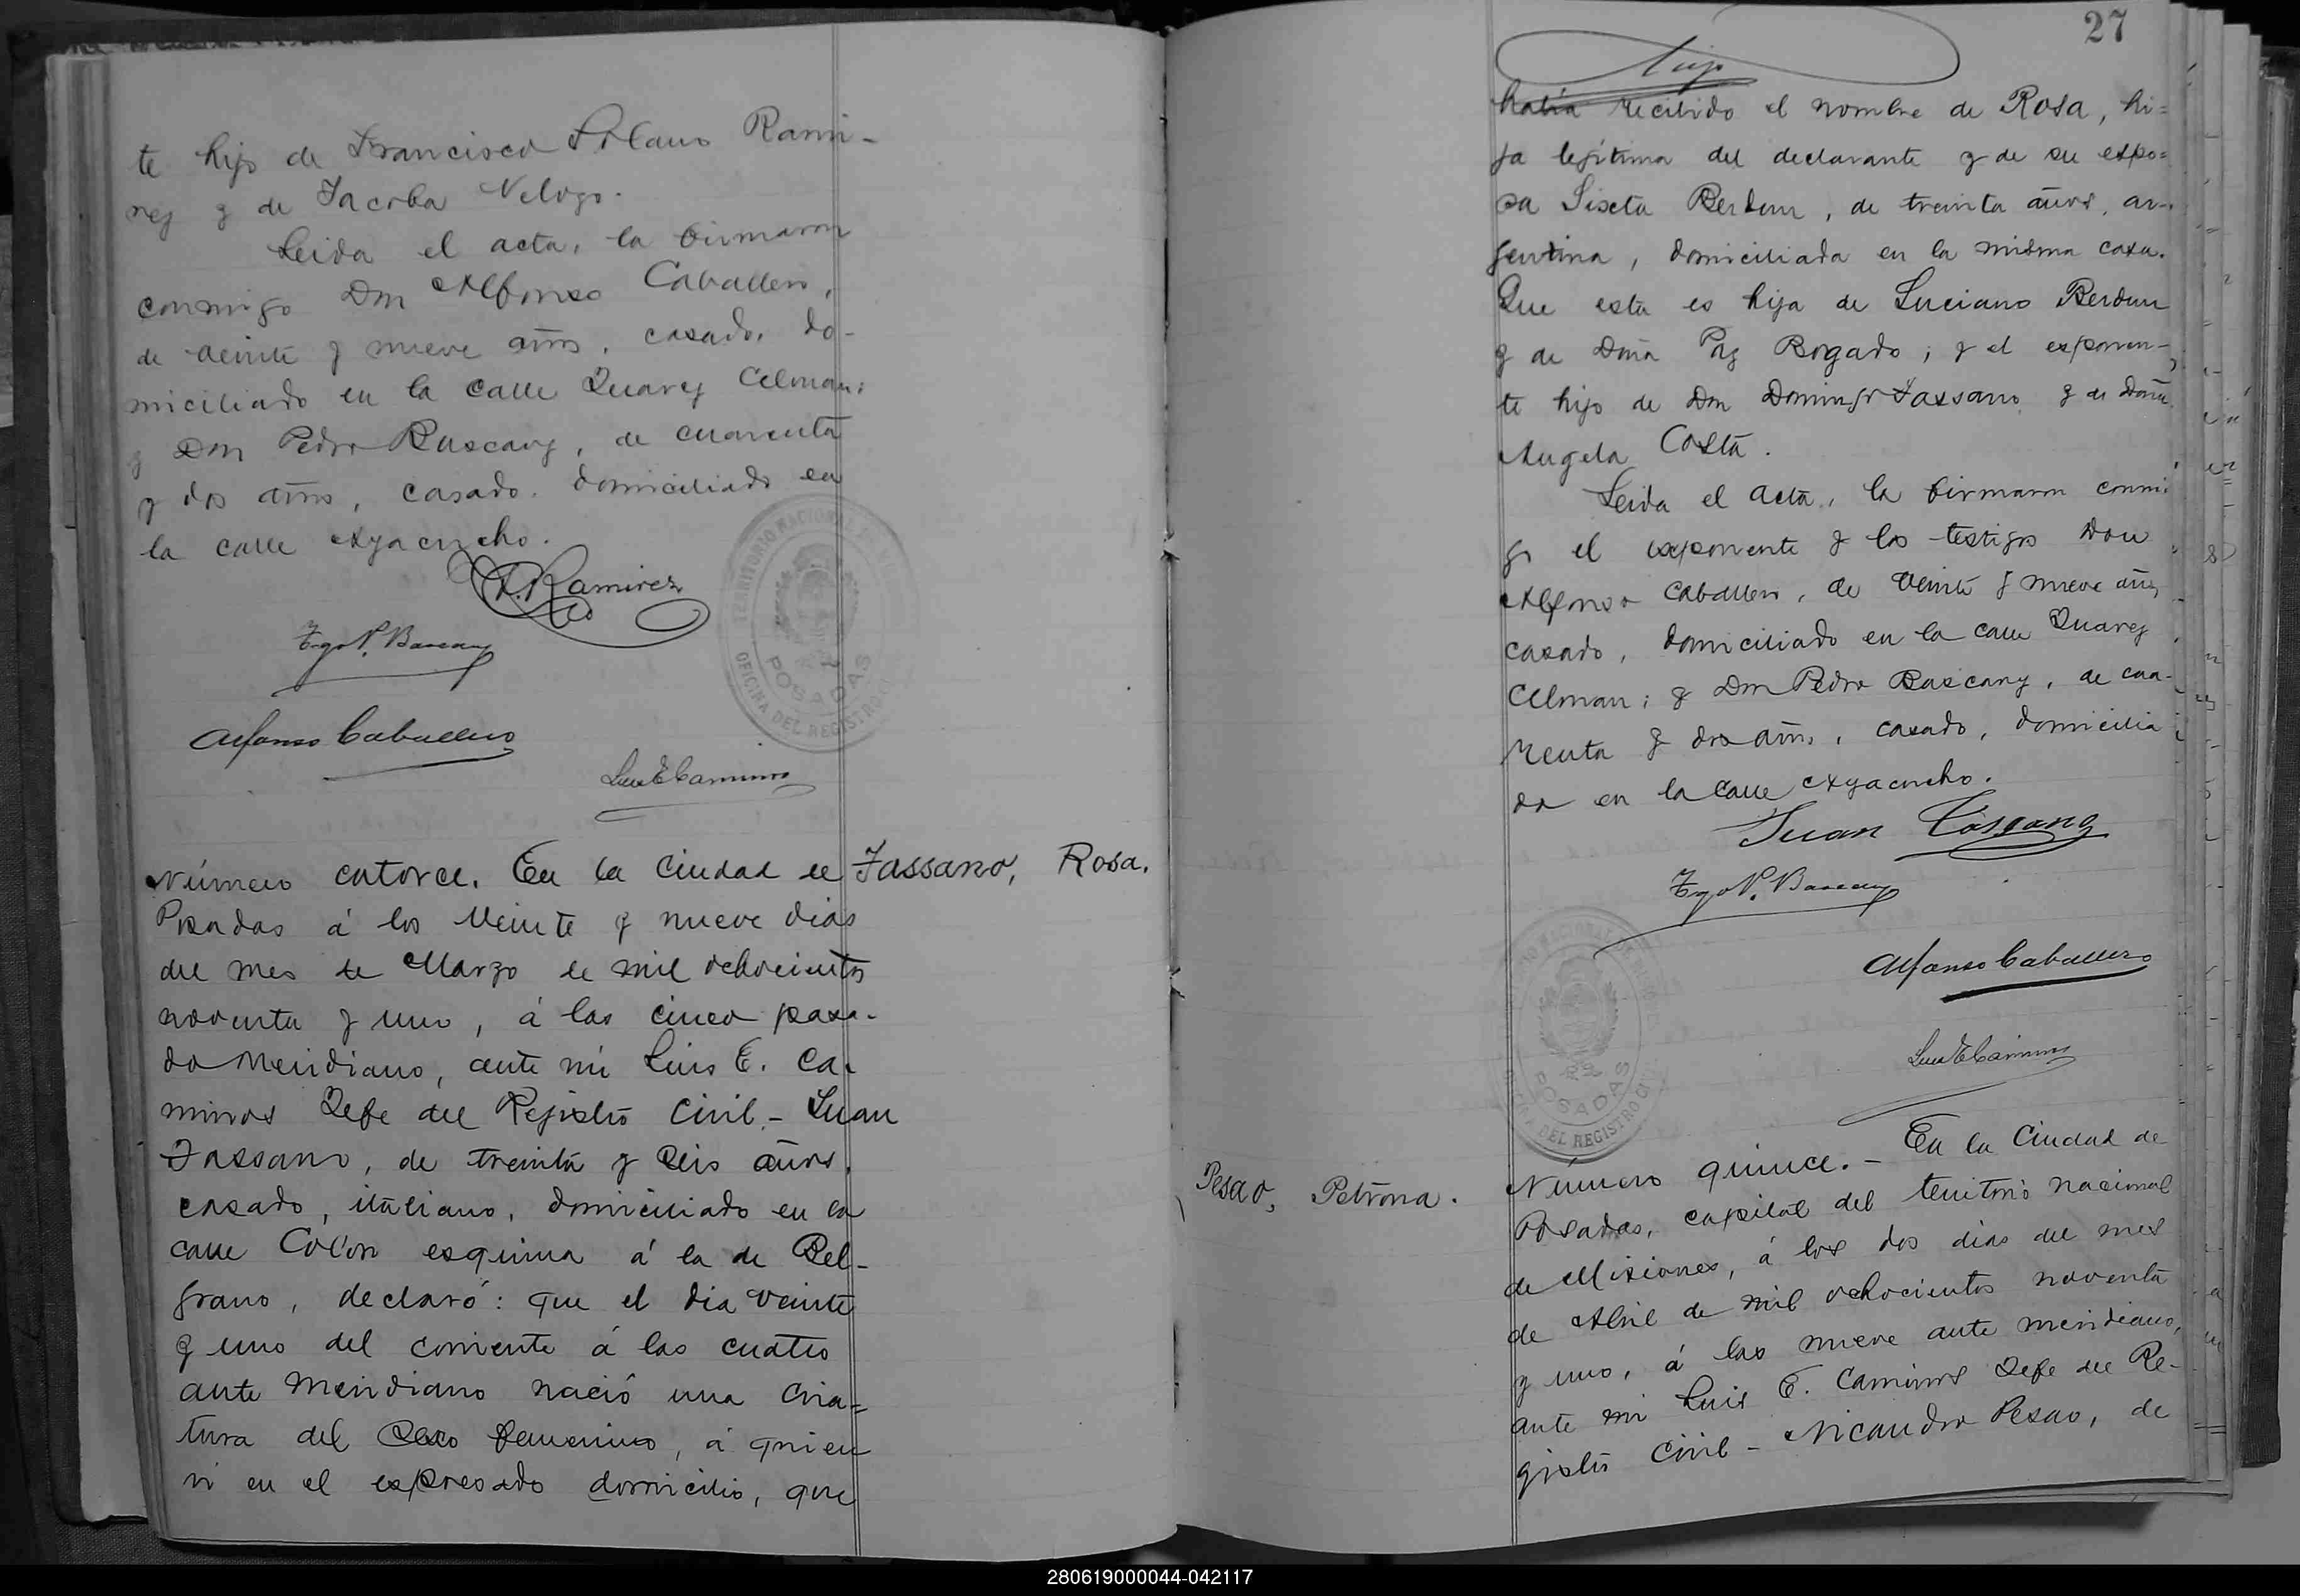 te hijo de Francisco Solano Rami-
rez y de Jacoba Velozo.
Leida el acta, la firmaron
conmigo Don Alfonso Caballero,
de veinte y nueve años, casado, do-
miciliado en la calle Juarez Celman;
y Don Pedro Bascary, de cuarenta
y dos años, casado, domiciliado en
la calle Ayacucho.
Ramirez
Tgo P. Bascary
Alfonso Caballero
Luis E Caminos
TERRITORIO NACIONAL
POSADAS
OFICINA DEL REGISTRO
Número catorce. En la Ciudad de
Posadas á los veinte y nueve dias
del mes de Marzo de mil ochocientos
noventa y uno, á las cinco pasa-
do Meridiano, ante mi Luis E. Ca-
minos Jefe del Registro Civil - Juan
Fassano, de treinta y seis años,
casado, italiano, domiciliado en la
calle Colón esquina á la de Bel-
grano, declaró: que el dia veinte
y uno del corriente á las cuatro
ante Meridiano nació una cria-
tura del sexo femenino, á quien
vi en el expresado domicilio, que
Fassano, Rosa.
27
había recibido el nombre de Rosa, hi-
ja legítima del declarante y de su espo-
sa Sixta Berdun, de treinta años, ar-
gentina, domiciliada en la misma casa.
Que esta es hija de Luciano Berdun
y de Doña Paz Bogado; y el exponen-
te hijo de Don Domingo Fassano y de Doña
Angela Costa.
Leida el acta, la firmaron conmi
go el exponente y los testigos Don
Alfonso Caballero, de veinte y nueve años
casado, domiciliado en la calle Juarez
Celman; y Don Pedro Bascary, de cua-
renta y dos años, casado, domicilia
do en la calle Ayacucho.
Juan
Tgo P. Bascary
Alfonso Caballero
Luis E Caminos
NACIONAL
POSADAS
DEL REGISTRO
Pesao, Petrona.
Número quince. - En la Ciudad de
Posadas, capital del territorio nacional
de Misiones, á los dos dias del mes
de Abril de mil ochocientos noventa
y uno, á las nueve ante meridiano,
ante mi Luis E. Caminos Jefe del Re-
gistro Civil - Nicandro Pesao, de
280619000044-042117